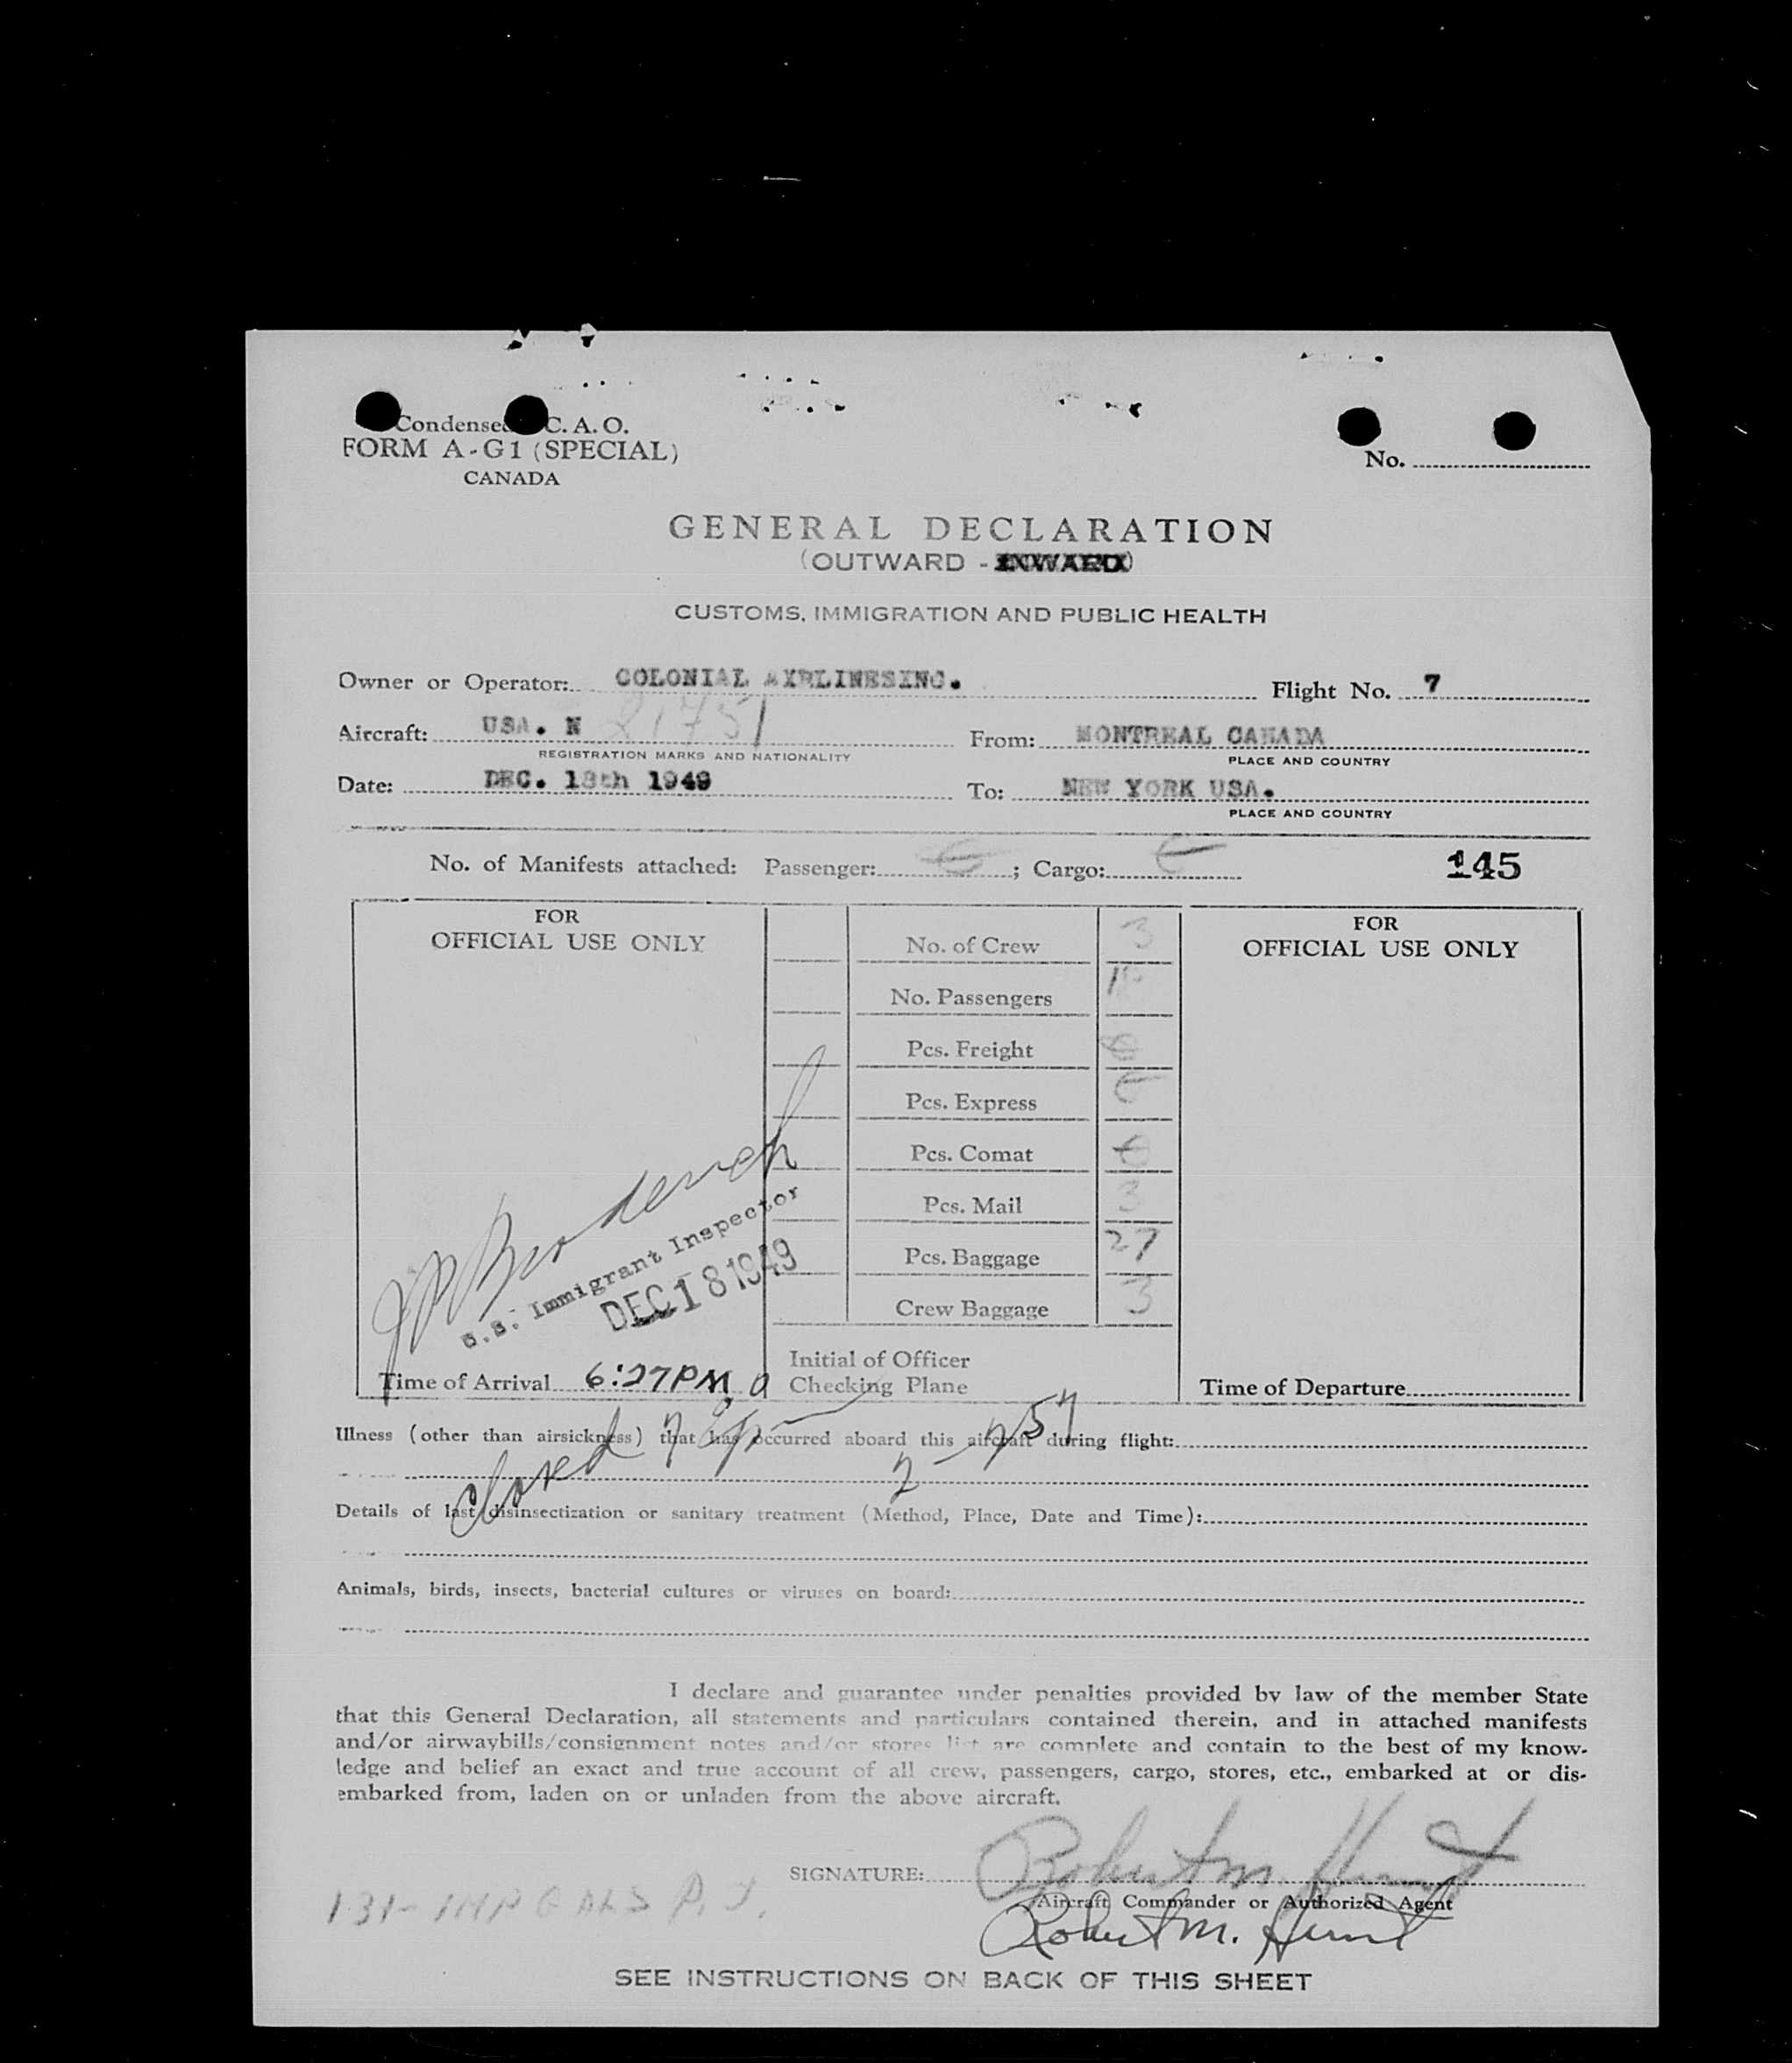 Condensed C. A. O.
FORM A-G1 (SPECIAL)
CANADA
No.
GENERAL DECLARATION
(OUTWARD - INWARD)
CUSTOMS, IMMIGRATION AND PUBLIC HEALTH
Owner or Operator: COLONIAL AIRLINESINC. Flight No. 7
Aircraft: USA. N 21751 From: MONTREAL CANADA
REGISTRATION MARKS AND NATIONALITY PLACE AND COUNTRY
Date: DEC. 18th 1949 To: NEW YORK USA.
PLACE AND COUNTRY
No. of Manifests attached: Passenger: ; Cargo: 145
FOR
OFFICIAL USE ONLY
No. of Crew 3
No. Passengers
Pcs. Freight
Pcs. Express
Pcs. Comat
Pcs. Mail 3
Pcs. Baggage 27
Crew Baggage 3
Initial of Officer
Checking Plane
U.S. Immigrant Inspector
DEC 18 1949
Time of Arrival 6:27PM
FOR
OFFICIAL USE ONLY
Time of Departure
Illness (other than airsickness) that has occurred aboard this aircraft during flight:
closed
Details of last disinsectization or sanitary treatment (Method, Place, Date and Time):
Animals, birds, insects, bacterial cultures or viruses on board:
I declare and guarantee under penalties provided by law of the member State
that this General Declaration, all statements and particulars contained therein, and in attached manifests
and/or airwaybills/consignment notes and/or stores list are complete and contain to the best of my know-
ledge and belief an exact and true account of all crew, passengers, cargo, stores, etc., embarked at or dis-
embarked from, laden on or unladen from the above aircraft.
SIGNATURE: Robert M. Hunt
Aircraft Commander or Authorized Agent
Robert M. Hunt
SEE INSTRUCTIONS ON BACK OF THIS SHEET